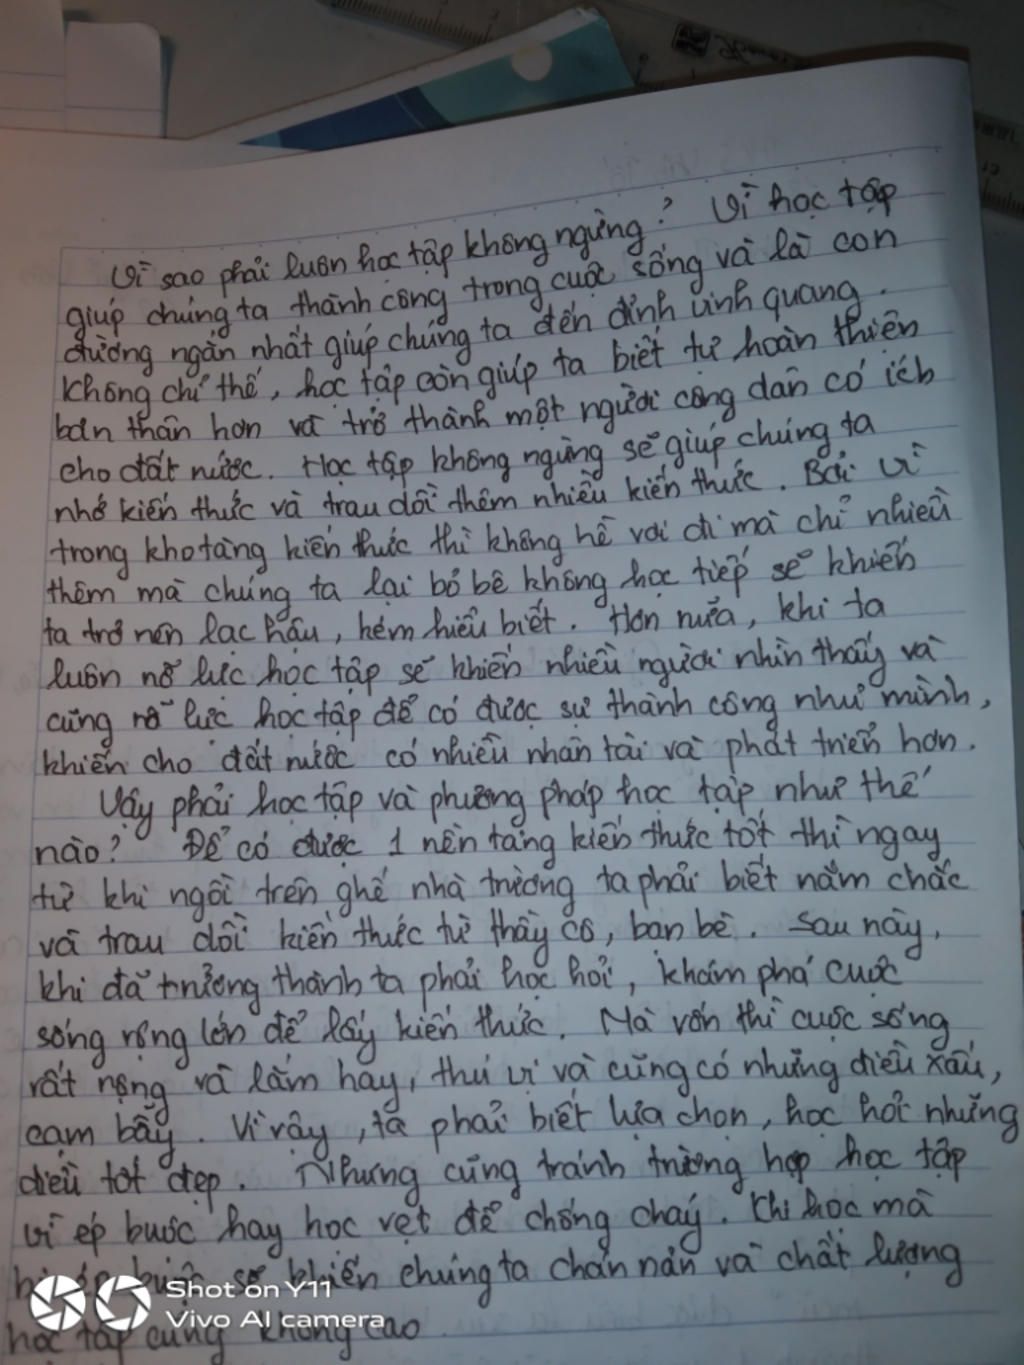 Vì sao phải luôn học tập không ngừng? Vì học tập
giúp chúng ta thành công trong cuộc sống và là con
đường ngắn nhất giúp chúng ta đến đỉnh vinh quang.
Không chỉ thế, học tập còn giúp ta biết tự hoàn thiện
bản thân hơn và trở thành một người công dân có ích
cho đất nước. Học tập không ngừng sẽ giúp chúng ta
nhớ kiến thức và trau dồi thêm nhiều kiến thức. Bởi vì
trong kho tàng kiến thức thì không hề vơi đi mà chỉ nhiều
thêm mà chúng ta lại bỏ bê không học tiếp sẽ khiến
ta trở nên lạc hậu, kém hiểu biết. Hơn nữa, khi ta
luôn nỗ lực học tập sẽ khiến nhiều người nhìn thấy và
cũng nỗ lực học tập để có được sự thành công như mình,
khiến cho đất nước có nhiều nhân tài và phát triển hơn.
Vậy phải học tập và phương pháp học tập như thế
nào? Để có được 1 nền tảng kiến thức tốt thì ngay
từ khi ngồi trên ghế nhà trường ta phải biết nắm chắc
và trau dồi kiến thức từ thầy cô, bạn bè. Sau này,
khi đã trưởng thành ta phải học hỏi, khám phá cuộc
sống rộng lớn để lấy kiến thức. Mà vốn thì cuộc sống
rất rộng và lắm hay, thú vị và cũng có những điều xấu,
cạm bẫy. Vì vậy, ta phải biết lựa chọn, học hỏi những
điều tốt đẹp. Nhưng cũng tránh trường hợp học tập
vì ép buộc hay học vẹt để chống cháy. Khi học mà
bị ép buộc sẽ khiến chúng ta chán nản và chất lượng
học tập cũng không cao.
Shot on Y11
Vivo AI camera